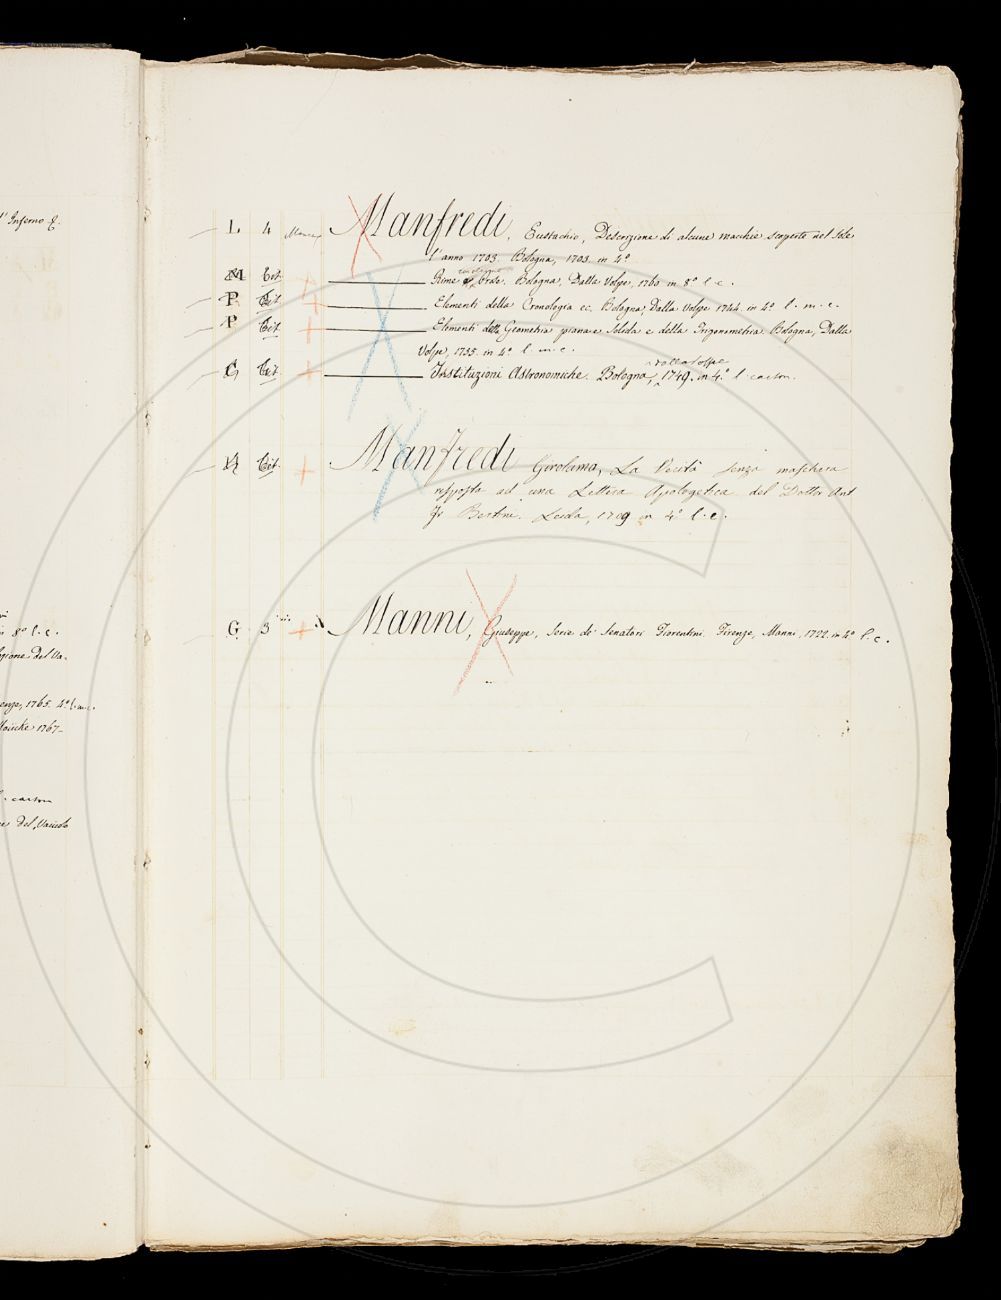 l' Inferno f.
8º l. c.
gione del Va-
enze, 1765. 4º l. m. c.
Moücke 1767-
l. carton
e del Vassallo
L 4 Manca Manfredi, Eustachio, Descrizione di alcune macchie scoperte nel Sole
l'anno 1703. Bologna, 1703. in 4º
M Rime Bologna, Dalla Volpe, 1760 in 8º l. c.
P Elementi della Cronologia ec. Bologna, Dalla Volpe 1744. in 4º l. m. c.
P Elementi della Geometria piana e Solida e della Trigonometria. Bologna, Dalla
Volpe, 1755. in 4º l. m. c.
dalla Volpe
G Instituzioni Astronomiche. Bologna, 1749. in 4º l. carton.
Manfredi Girolamo, La Verità senza maschera
risposta ad una Lettera Apologetica del Dottor Ant
Fr Bertini. Leida, 1709 in 4º l. c.
G 3 Manni, Giuseppe, Serie de' Senatori Fiorentini. Firenze, Manni, 1722. in 4º l. c.